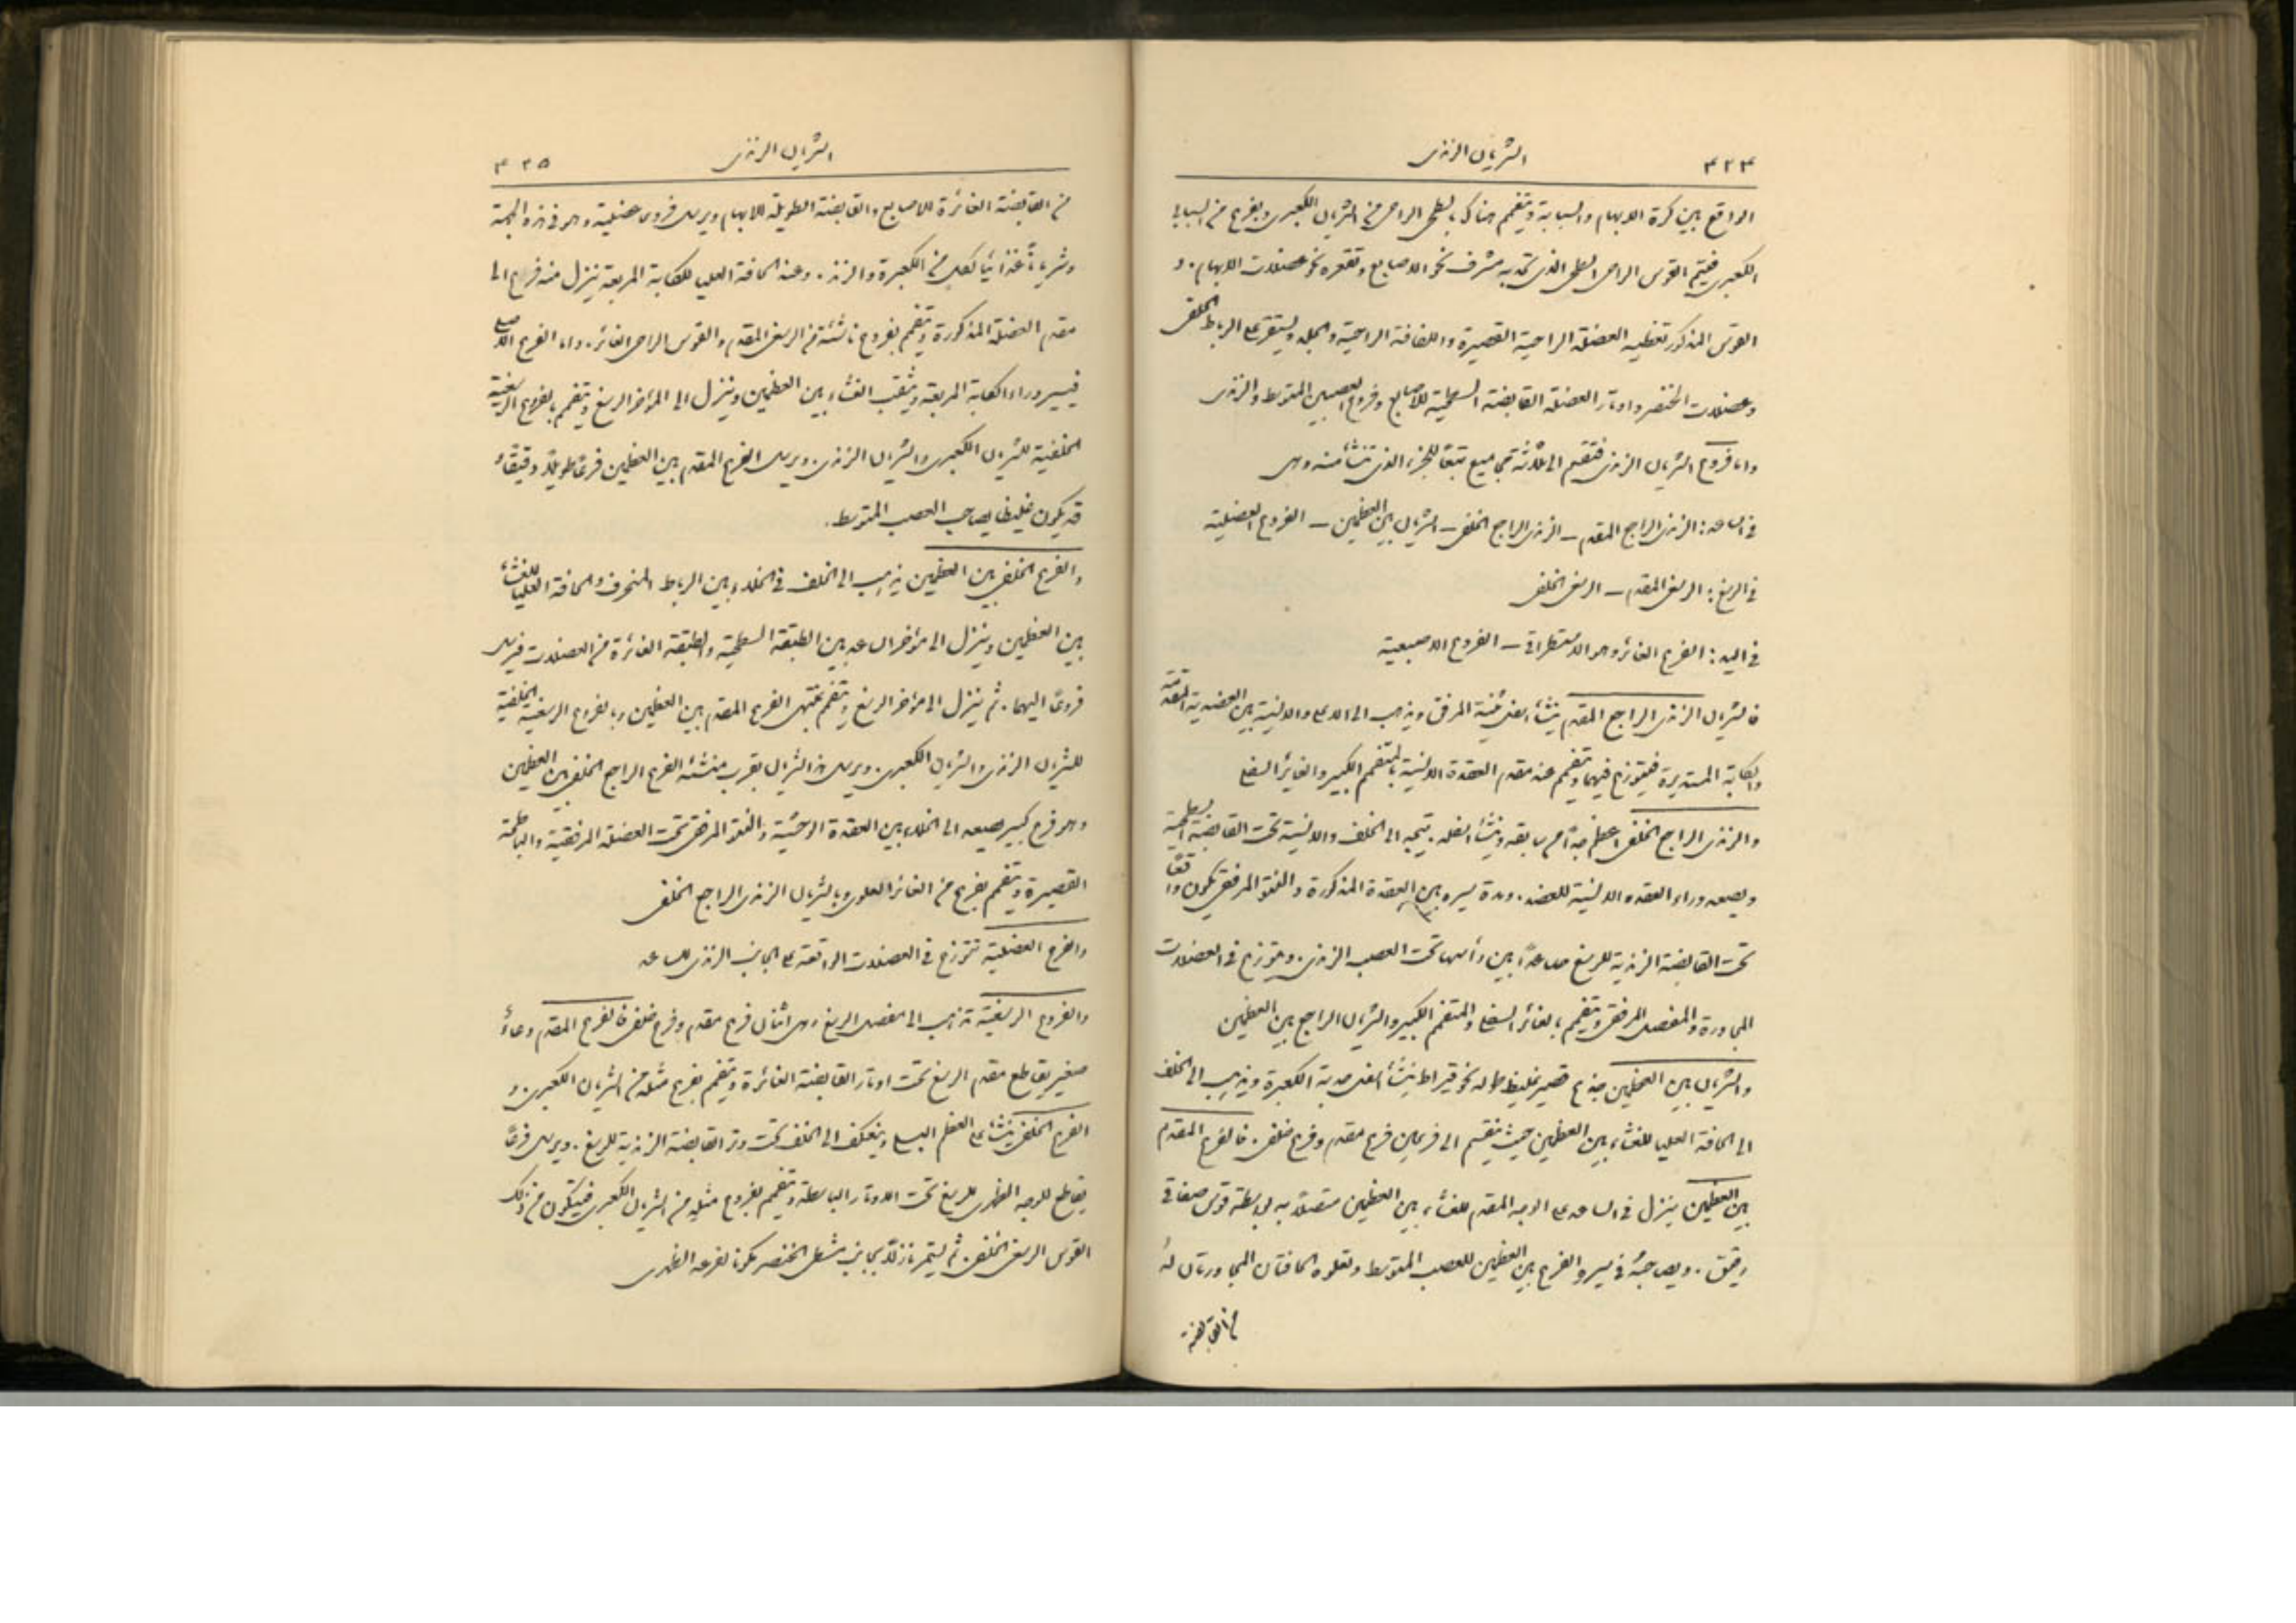 ٤٢٤
الشريان الزندى
الواقع بين كرة الابهام والسبابة ويتفمم هناك بالسطحى الراحى من الشريان الكعبرى وبفرع من السبابى
الكعبرى فيتم القوس الراحى السطحى الذى تحدبه مشرف نحو الاصابع وتقعره نحو عضلات الابهام . و
القوس المذكور تغطيه العضلة الراحية القصيرة واللفافة الراحية والجلد ويستقر على الرباط الحلقى
وعضلات الخنصر واوتار العضلة القابضة السطحية للاصابع وفروع العصبين المتوسط والزندى
واما فروع الشريان الزندى فتقسم الى ثلاثة مجاميع تبعًا للجزء الذى تنشأ منه وهى
فى الساعد : الزندى الراجع المقدم – الزندى الراجع الخلفى – الشريان بين العظمين – الفروع العضلية
فى الرسغ : الرسغى المقدم – الرسغى الخلفى
فى اليد : الفرع الغائر وهو الاستطراقى – الفروع الاصبعية
فالشريان الزندى الراجع المقدم ينشأ اسفل ثنية المرفق ويذهب الى الاعلى والانسية بين العضدية المقدمة
والكابة المستديرة فيتوزع فيهما ويتفمم عند مقدم العقدة الانسية بالمتفمم الكبير والغائر السفلى
والزندى الراجع الخلفى اعظم جدًا من سابقه وينشأ اسفله . يتجه الى الخلف والانسية تحت القابضة السطحية
ويصعد وراء العقدة الانسية للعضد . ومدة سيره بين العقدة المذكورة والنتوء المرفقى يكون واقعًا
تحت القابضة الزندية للرسغ صاعدًا بين رأسيها تحت العصب الزندى . ويتوزع فى العضلات
المجاورة والمفصل المرفقى ويتفمم بالغائر السفلى والمتفمم الكبير والشريان الراجع بين العظمين
والشريان بين العظمين جذع قصير غليظ طوله نحو قيراط ينشأ اسفل حدبة الكعبرة ويذهب الى الخلف
الى الحافة العليا للغشاء بين العظمين حيث ينقسم الى فرعين فرع مقدم وفرع خلفى . فالفرع المقدم
بين العظمين ينزل فى الساعد على الوجه المقدم للغشاء بين العظمين متصلاً به بواسطة قوس صفاقى
رقيق . ويصاحبه فى سيره الفرع بين العظمين للعصب المتوسط وتعلوه الحافتان المجاورتان له
من القابضة
الشريان الزندى
٤٢٥
من القابضة الغائرة للاصابع والقابضة الطويلة للابهام ويرسل فروعا عضلية وهو فى هذه الجهة
وشريانًا غذائيًا لكل من الكعبرة والزند . وعند الحافة العليا للكابة المربعة ينزل منه فرع الى
مقدم العضلة المذكورة ويتفمم بفروع ناشئة من الرسغى المقدم والقوس الراحى الغائر . واما الفرع الاصلى
فيسير وراء الكابة المربعة ويثقب الغشاء بين العظمين وينزل الى المؤخر الرسغ ويتفمم بالفروع الرسغية
الخلفية للشريان الكعبرى والشريان الزندى . ويرسل الفرع المقدم بين العظمين فرعًا طويلاً رقيقًا و
قد يكون غليظًا يصاحب العصب المتوسط .
والفرع الخلفى بين العظمين يذهب الى الخلف فى الخلاء بين الرباط المنحرف والحافة العليا للغشاء
بين العظمين وينزل الى مؤخر الساعد بين الطبقة السطحية والطبقة الغائرة من العضلات فيرسل
فروعًا اليهما . ثم ينزل الى مؤخر الرسغ ويتفمم بمنتهى الفرع المقدم بين العظمين وبالفروع الرسغية الخلفية
للشريان الزندى والشريان الكعبرى . ويرسل هذا الشريان بقرب منشئه الفرع الراجع الخلفى بين العظمين
وهو فرع كبير يصعد الى الخلاء بين العقدة الوحشية والنتوء المرفقى تحت العضلة المرفقية والباطحة
القصيرة ويتفمم بفرع من الغائر العلوى وبالشريان الزندى الراجع الخلفى
والفروع العضلية تتوزع فى العضلات الواقعة على الجانب الزندى للساعد
والفروع الرسغية تذهب الى مفصل الرسغ وهى اثنان فرع مقدم وفرع خلفى فالفرع المقدم وعاءٌ
صغير يقاطع مقدم الرسغ تحت اوتار القابضة الغائرة ويتفمم بفرع مثله من الشريان الكعبرى . و
الفرع الخلفى ينشأ على العظم البسلى وينعكف الى الخلف تحت وتر القابضة الزندية للرسغ . ويرسل فرعًا
يقاطع الوجه الظهرى للرسغ تحت الاوتار الباسطة ويتفمم بفروع مثله من الشريان الكعبرى فيتكون من ذلك
القوس الرسغى الخلفى . ثم يستمر نازلاً بجانب مشط الخنصر مكونا لفرعه الظهرى